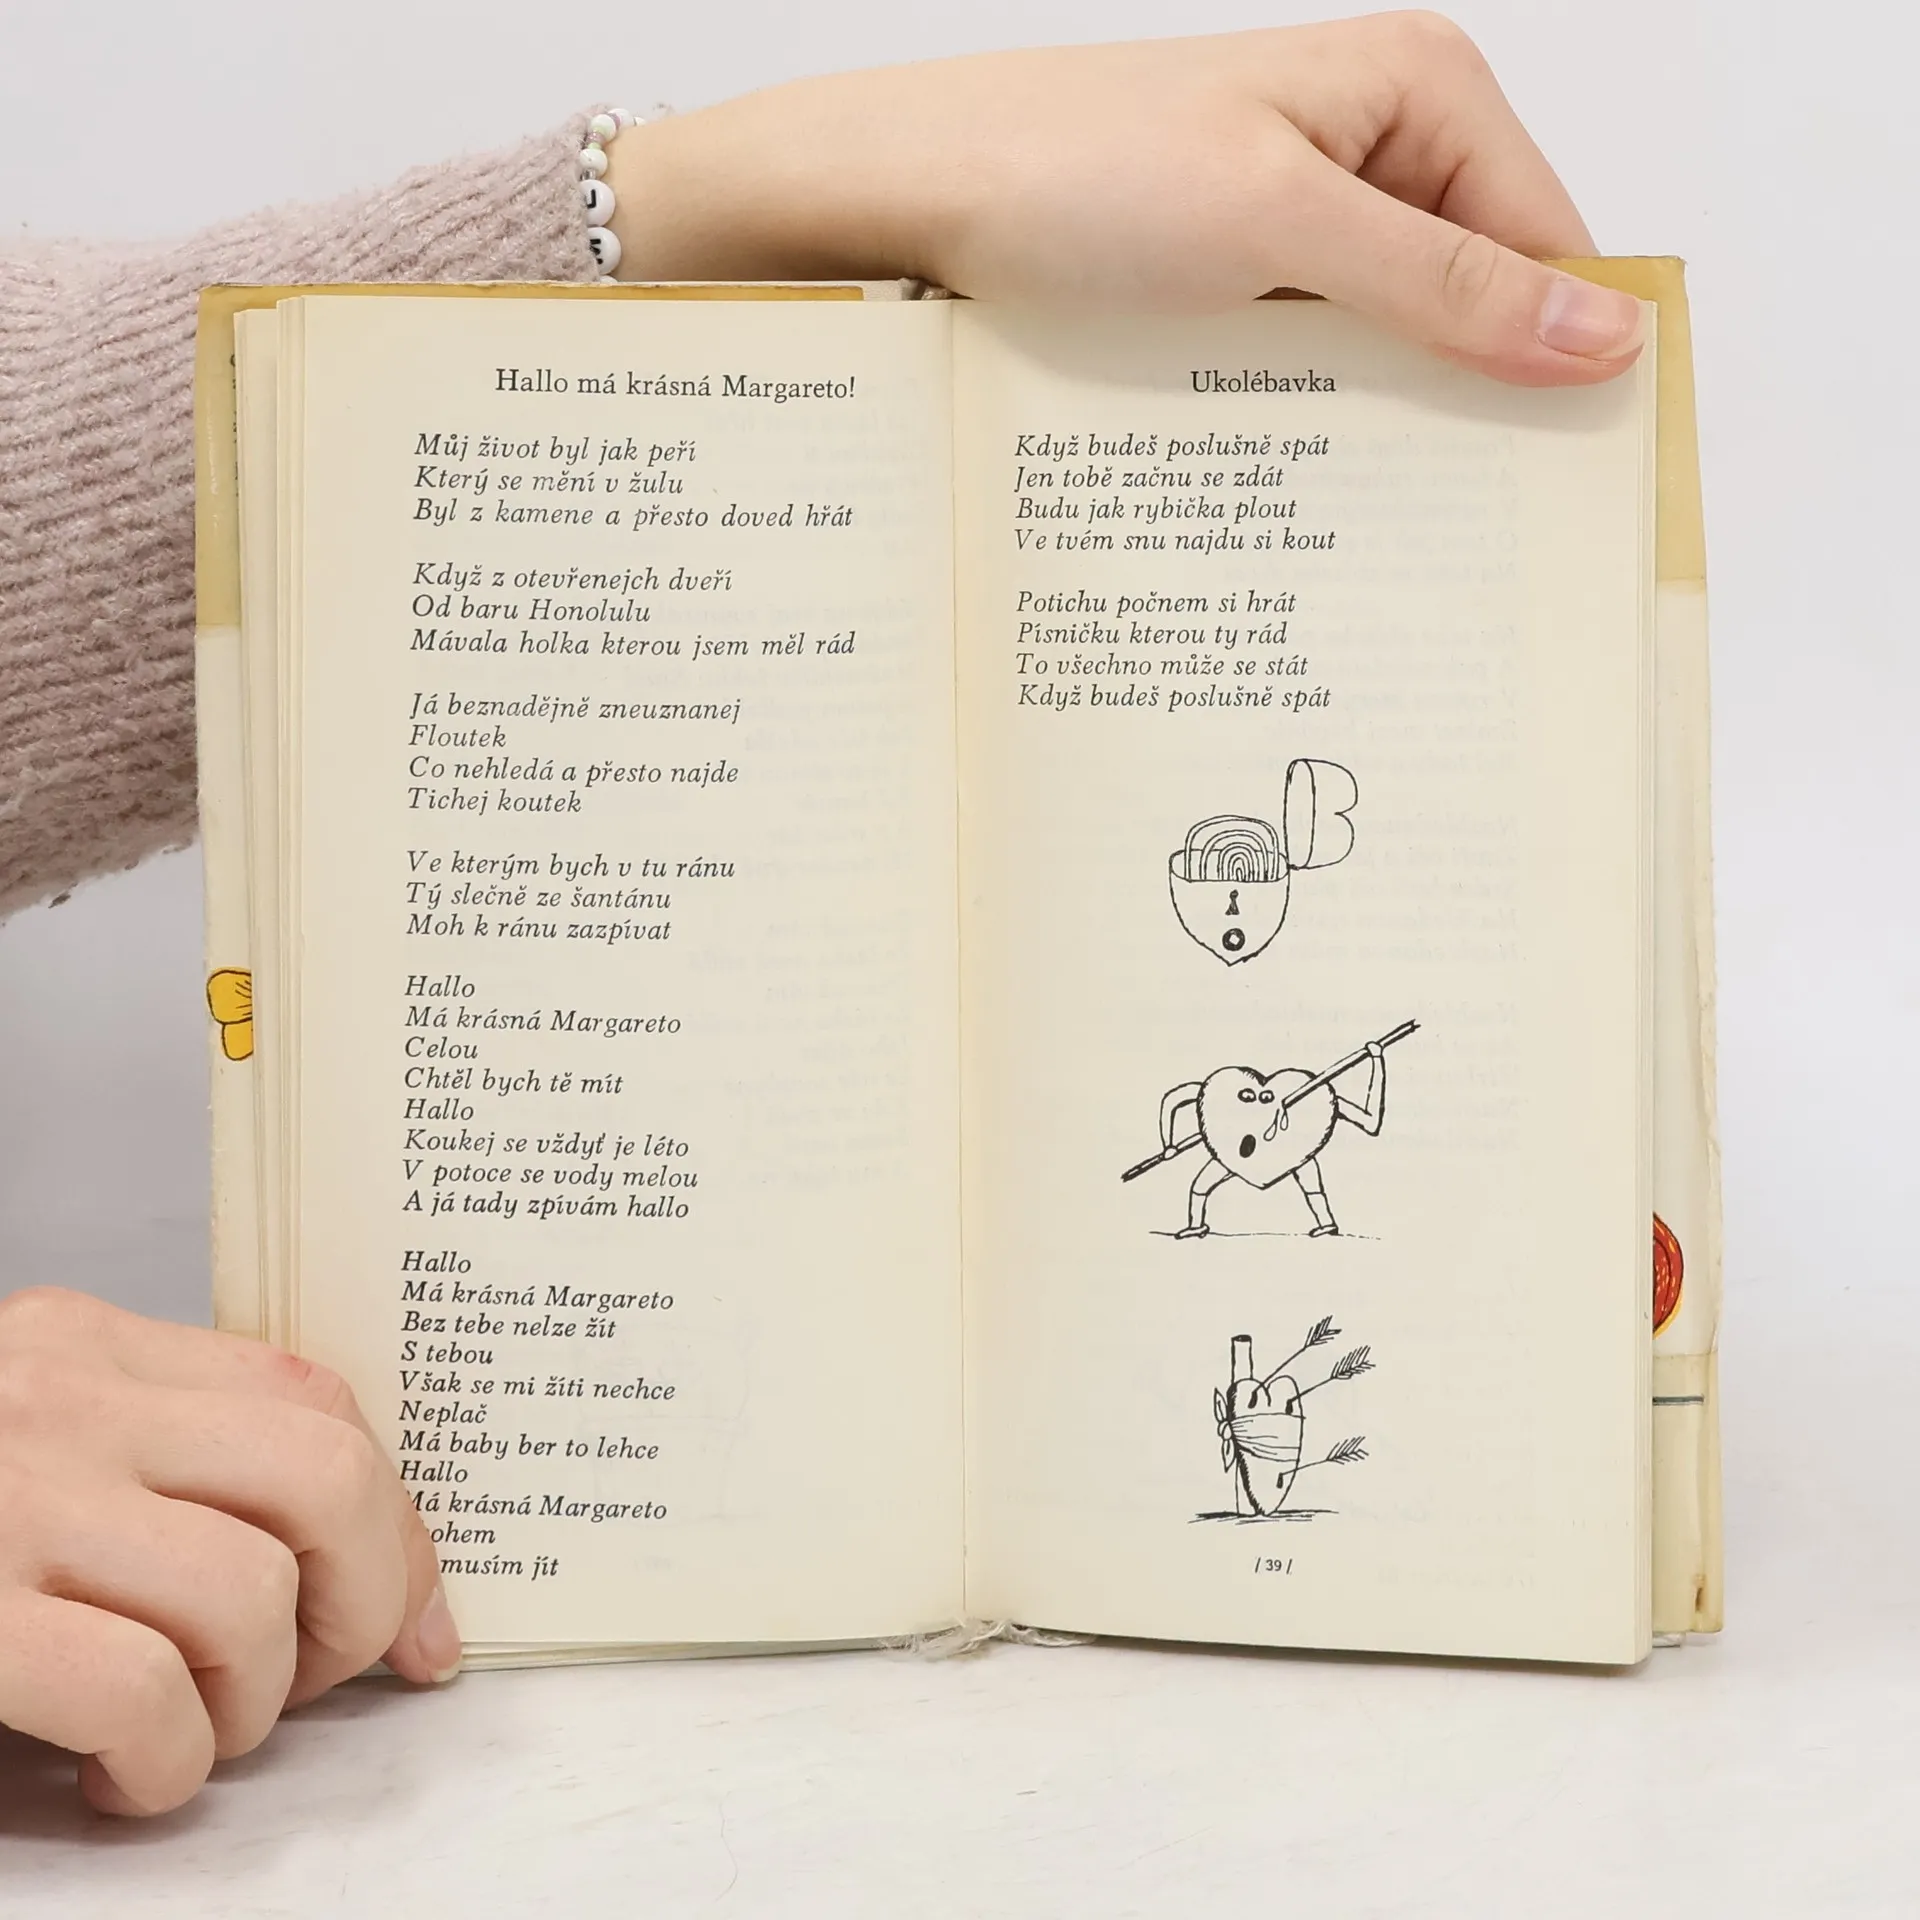 Hallo má krásná Margareto!
Můj život byl jak peří
Který se mění v žulu
Byl z kamene a přesto doved hřát
Když z otevřenejch dveří
Od baru Honolulu
Mávala holka kterou jsem měl rád
Já beznadějně zneuznanej
Floutek
Co nehledá a přesto najde
Tichej koutek
Ve kterým bych v tu ránu
Tý slečně ze šantánu
Moh k ránu zazpívat
Hallo
Má krásná Margareto
Celou
Chtěl bych tě mít
Hallo
Koukej se vždyť je léto
V potoce se vody melou
A já tady zpívám hallo
Hallo
Má krásná Margareto
Bez tebe nelze žít
S tebou
Však se mi žíti nechce
Neplač
Má baby ber to lehce
Hallo
Má krásná Margareto
musím jít
Ukolébavka
Když budeš poslušně spát
Jen tobě začnu se zdát
Budu jak rybička plout
Ve tvém snu najdu si kout
Potichu počnem si hrát
Písničku kterou ty rád
To všechno může se stát
Když budeš poslušně spát
/ 39 /